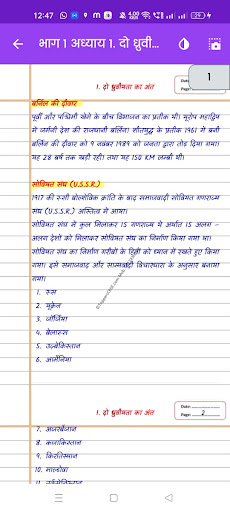 12:47
4.00
29
भाग १ अध्याय १. दो ध्रुवी...
1
१. दो ध्रुवीयता का अंत
Page:
बर्लिन की दीवार
पूर्वी और पश्चिमी खेमे के बीच विभाजन का प्रतीक थी। यूरोप महाद्विप
में जर्मनी देश की राजधानी बर्लिन! शीतयुद्ध के प्रतीक 1961 में बनी
बर्लिन की दीवार को 9 नवंबर 1989 को जनता द्वारा तोड़ दिया गया।
यह 28 वर्ष तक खड़ी रही। तथा यह 150 KM लम्बी थी।
सोवियत संघ (U.S.S.R.)
1917 की रूसी बोल्शेविक क्रांति के बाद समाजवादी सोवियत गणराज्य
संघ (U.S.S.R.) अस्तित्व में आया।
सोवियत संघ में कुल मिलाकर 15 गणराज्य थे अर्थात 15 अलग –
अलग देशों को मिलाकर सोवियत संघ का निर्माण किया गया था।
सोवियत संघ का निर्माण गरीबों के हितों को ध्यान में रखते हुए किया
गया। इसे समाजवाद और साम्यवादी विचारधारा के अनुसार बनाया
गया।
1. रूस
2. यूक्रेन
3. जॉर्जिया
4. बेलारूस
5. उज्बेकिस्तान
6. आर्मेनिया
१. दो ध्रुवीयता का अंत
Date:
Page: 2
7. अजरबैजान
8. कजाकिस्तान
9. किरतिस्थान
10. माल्दोवा